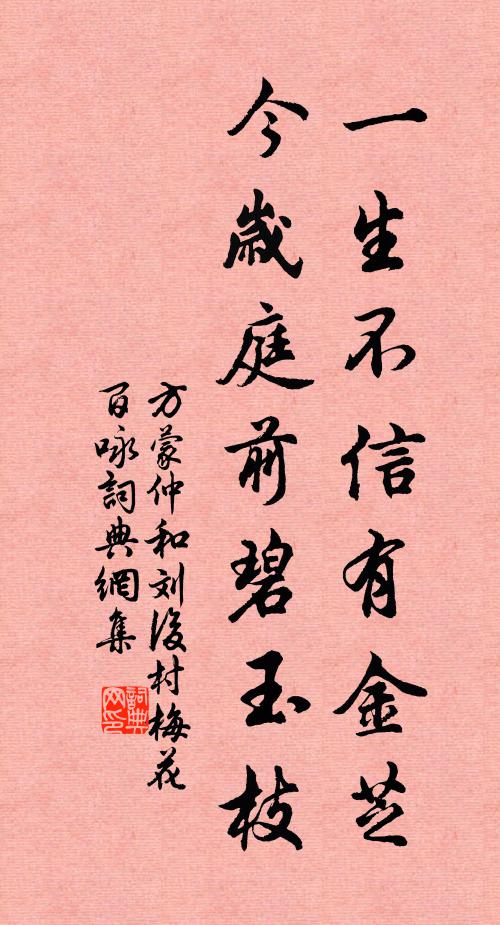 一生不信有金芝
今歲庭前碧玉枝
方蒙仲和刘後村梅花
百咏詞典網集
詞典网印